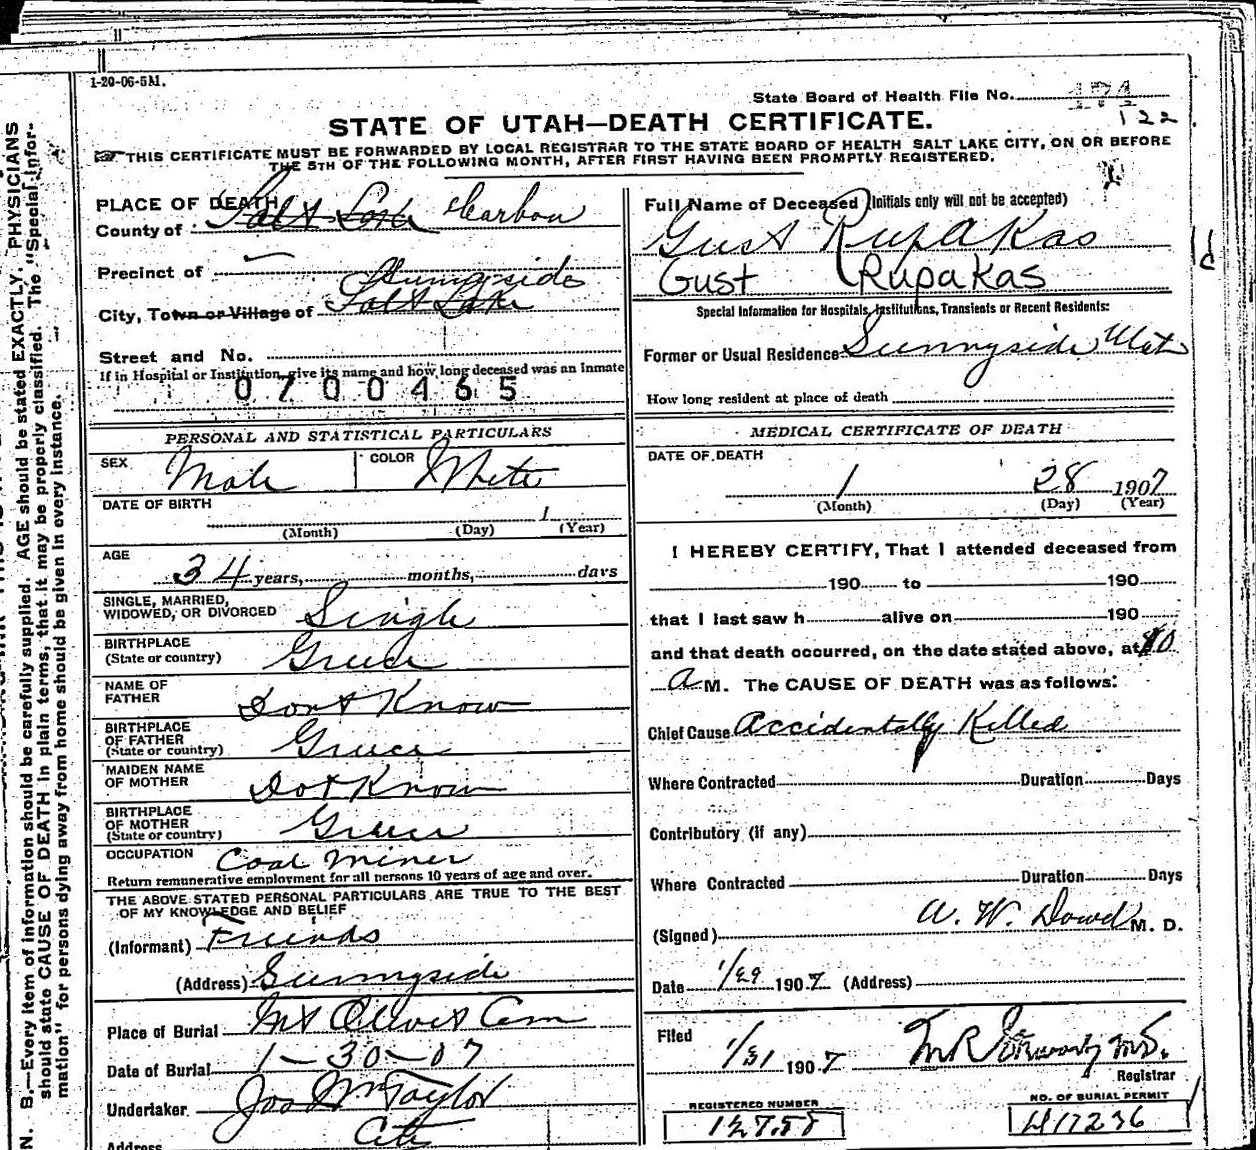 1-20-06-5M.
State Board of Health File No. 174
122
STATE OF UTAH—DEATH CERTIFICATE.
THIS CERTIFICATE MUST BE FORWARDED BY LOCAL REGISTRAR TO THE STATE BOARD OF HEALTH SALT LAKE CITY, ON OR BEFORE
THE 5TH OF THE FOLLOWING MONTH, AFTER FIRST HAVING BEEN PROMPTLY REGISTERED.
PLACE OF DEATH
County of Salt Lake Carbon
Precinct of
Sunnyside
City, Town or Village of Salt Lake
Street and No.
If in Hospital or Institution, give its name and how long deceased was an Inmate
0700465
PERSONAL AND STATISTICAL PARTICULARS
SEX Male COLOR White
DATE OF BIRTH 1
(Month) (Day) (Year)
AGE
34 years, months, days
SINGLE, MARRIED,
WIDOWED, OR DIVORCED Single
BIRTHPLACE
(State or country) Greece
NAME OF
FATHER Dont Know
BIRTHPLACE
OF FATHER
(State or country) Greece
MAIDEN NAME
OF MOTHER Dot Know
BIRTHPLACE
OF MOTHER
(State or country) Greece
OCCUPATION Coal Miner
Return remunerative employment for all persons 10 years of age and over.
THE ABOVE STATED PERSONAL PARTICULARS ARE TRUE TO THE BEST
OF MY KNOWLEDGE AND BELIEF
(Informant) Friends
(Address) Sunnyside
Place of Burial Mt Olivet Cem
Date of Burial 1-30-07
Undertaker Jos Wm Taylor
Address City
Full Name of Deceased (Initials only will not be accepted)
Gust Rupakas
Gust Rupakas
Special Information for Hospitals, Institutions, Transients or Recent Residents:
Former or Usual Residence Sunnyside Utah
How long resident at place of death
MEDICAL CERTIFICATE OF DEATH
DATE OF DEATH
1 28 1907
(Month) (Day) (Year)
I HEREBY CERTIFY, That I attended deceased from
190 to 190
that I last saw h alive on 190
and that death occurred, on the date stated above, at 10
A M. The CAUSE OF DEATH was as follows:
Chief Cause Accidentally Killed
Where Contracted Duration Days
Contributory (if any)
Where Contracted Duration Days
(Signed) A. W. Dowd M. D.
Date 1/29 1907 (Address)
Filed
1/31 1907 M.D.
Registrar
REGISTERED NUMBER
NO. OF BURIAL PERMIT
N. B.—Every item of information should be carefully supplied. AGE should be stated EXACTLY. PHYSICIANS
should state CAUSE OF DEATH in plain terms, that it may be properly classified. The "Special Infor-
mation" for persons dying away from home should be given in every instance.